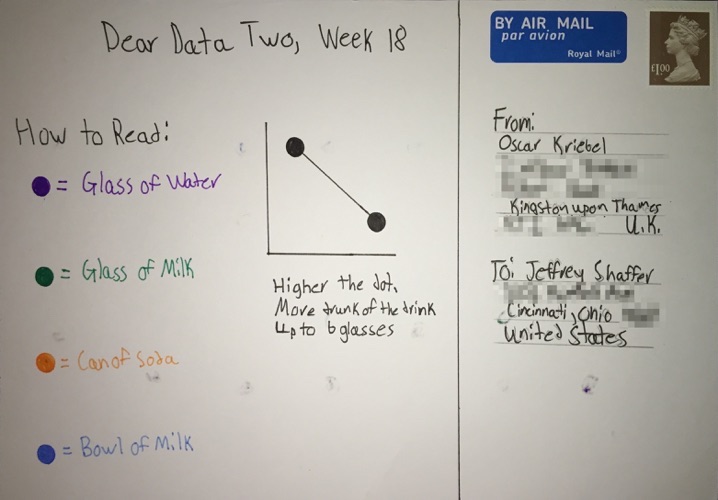 Dear Data Two, Week 18
How to Read:
= Glass of Water
= Glass of Milk
= Can of Soda
= Bowl of Milk
Higher the dot,
More drunk of the drink
Up to 6 glasses
BY AIR MAIL
par avion
Royal Mail®
£1.00
From:
Oscar Kriebel
Kingston upon Thames
U.K.
To: Jeffrey Shaffer
Cincinnati, Ohio
United States